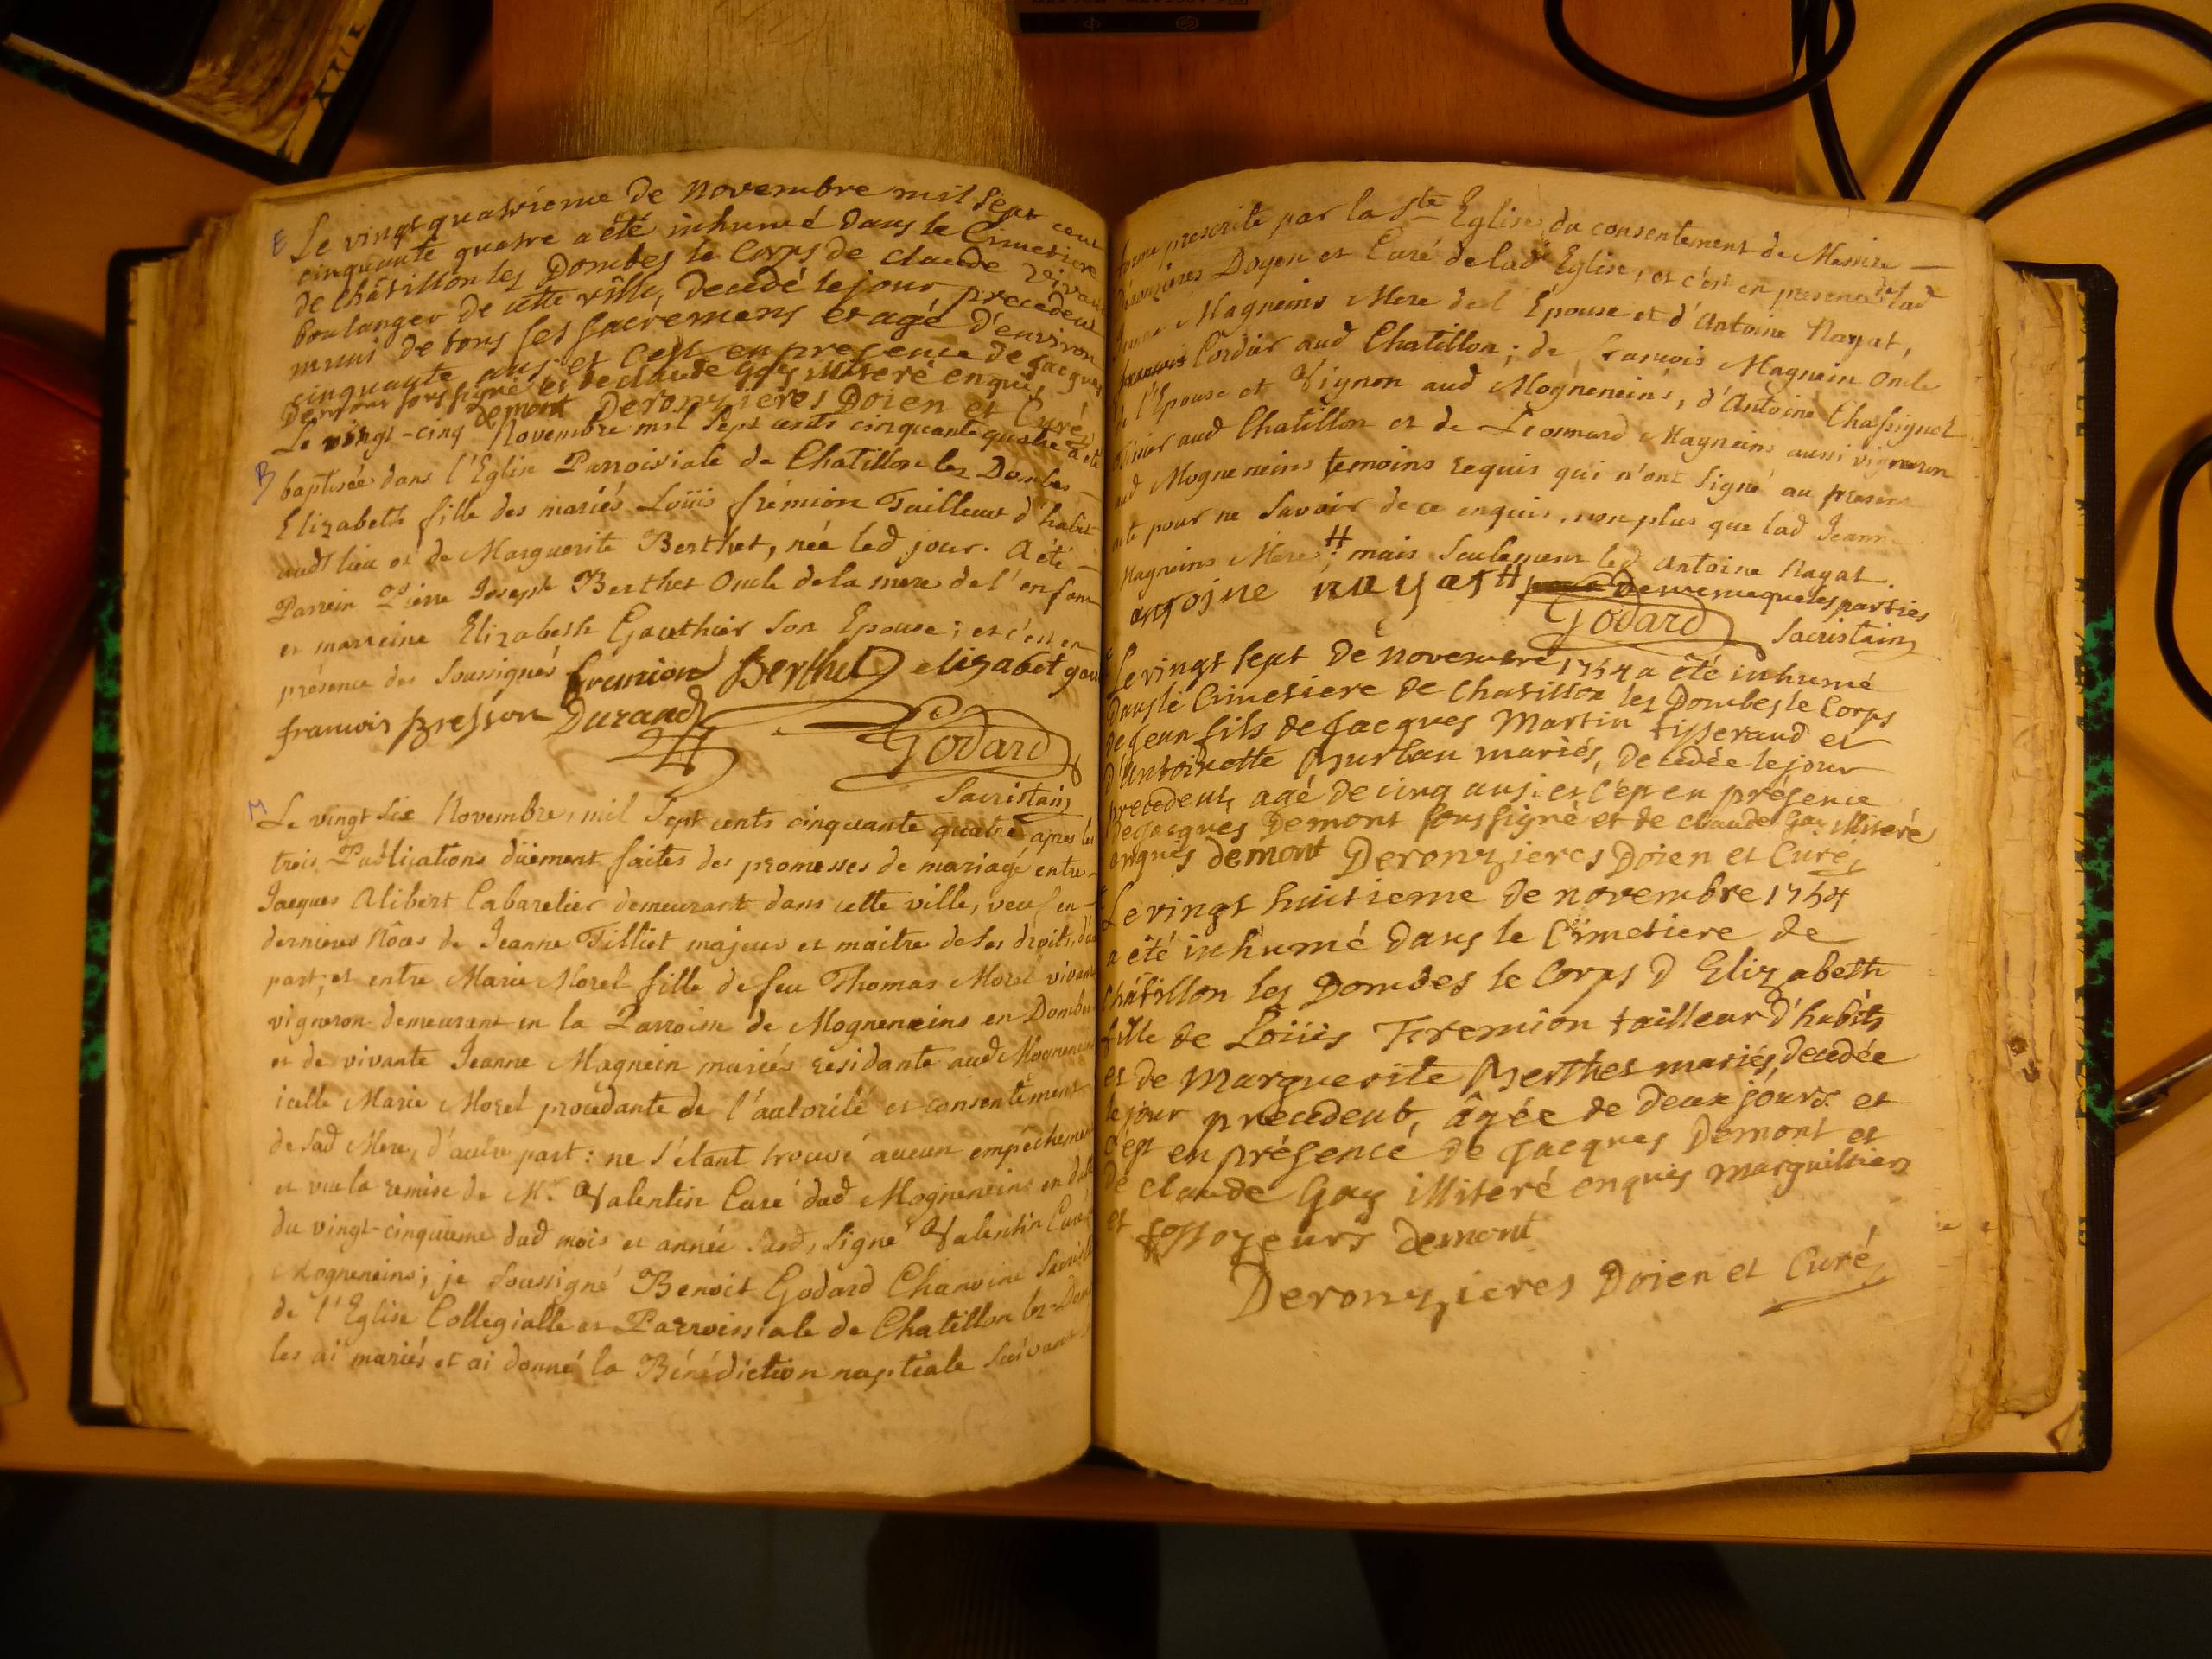 E Le vingt quatrieme de Novembre mil Sept cent
cinquante quatre a été inhumé dans le Cimetiere
de Châtillon les Dombes le Corps de claude
boulanger de cette ville, decedé le jour precedent
muni de tous ses sacremens et agé d'environ
cinquante ans, et c'est en presence de Jacques
Demont soussigné et de claude Gay illiteré enquis
demont Deronzieres Doien et Curé
B Le vingt-cinq Novembre mil Sept cents cinquante quatre a été
baptisée dans l'Eglise Parroissiale de Chatillon les Dombes
Elizabeth fille des mariés Loüis frémion Tailleur d'habit
audt lieu et de Marguerite Berthet, née led jour. A été
Parrein Pierre Joseph Berthet Oncle de la mere de l'enfant
et marreine Elizabeth Gauthier Son Epouse; et c'est en
présence des Soussignés fremion Berthet elizabet gau
francois Bresson Durand
Godard
Sacristain
M Le vingt Six Novembre, mil Sept cents cinquante quatre après les
trois Publications düement faites des promesses de mariage entre
Jacques Alibert Cabaretier demeurant dans cette ville, veuf en
dernieres Nôces de Jeanne Tilliet majeur et maitre de ses droits, d'une
part, et entre Marie Morel fille de feu Thomas Morel vivant
vigneron demeurant en la Parroisse de Mogneneins en Dombes
et de vivante Jeanne Magnein mariés residante aud Mogneneins
icelle Marie Morel procedante de l'autorité et consentement
de Sad Mere, d'autre part: ne S'étant trouvé aucun empêchement
et vu la remise de Mr. Valentin Curé dud Mogneneins en datte
du vingt-cinquieme dud mois et année Susd, Signé Valentin Curé
Mogneneins; je Soussigné Benoit Godard Chanoine Sacristain
de l'Eglise Collegialle et Parroissiale de Chatillon les Dombes
les ai mariés et ai donné la Bénédiction nuptiale Suivant
forme prescrite par la Ste Eglise, du consentement de Messire
Deronzieres Doyen et Curé de lad Eglise, et c'est en presence de lad
Jeanne Magneins Mere de l'Epouse et d'Antoine Nayat,
francois Cordier aud Chatillon; de francois Magnein Oncle
de l'Epouse et Vignon aud Mogneneins, d'Antoine Chassignol
aud Chatillon et de Leonnard Magneins aussi vigneron
aud Mogneneins temoins requis qui n'ont Signé au present
acte pour ne Savoir de ce enquis, non plus que lad Jeanne
Magneins Mere # ; mais Seulement led Antoine Nayat.
antoine nayat # de meme que les parties
Godard Sacristain
Le vingt Sept de Novembre 1754 a êté inhumé
Dans le Cimetiere de Chatillon les Dombes le Corps
de Jean fils de Jacques Martin tisserand et
d'Antoinette mariés, decedée le jour
precedent, agé de cinq ans. et c'est en présence
de Jacques Demont soussigné et de claude Gay illiteré
enquis demont Deronzieres Doien et Curé
Le vingt huitieme de novembre 1754
a êté inhumé dans le Cimetiere de
Châtillon les Dombes le Corps d Elizabeth
fille de Loüis Fremion tailleur d'habits
et de Marguerite Berthet mariés, decedée
le jour precedent, âgée de deux jours. et
c'est en présence de Jacques Demont et
de claude Gay illiteré enquis marguilliers
et fossoyeurs demont
Deronzieres Doien et Curé